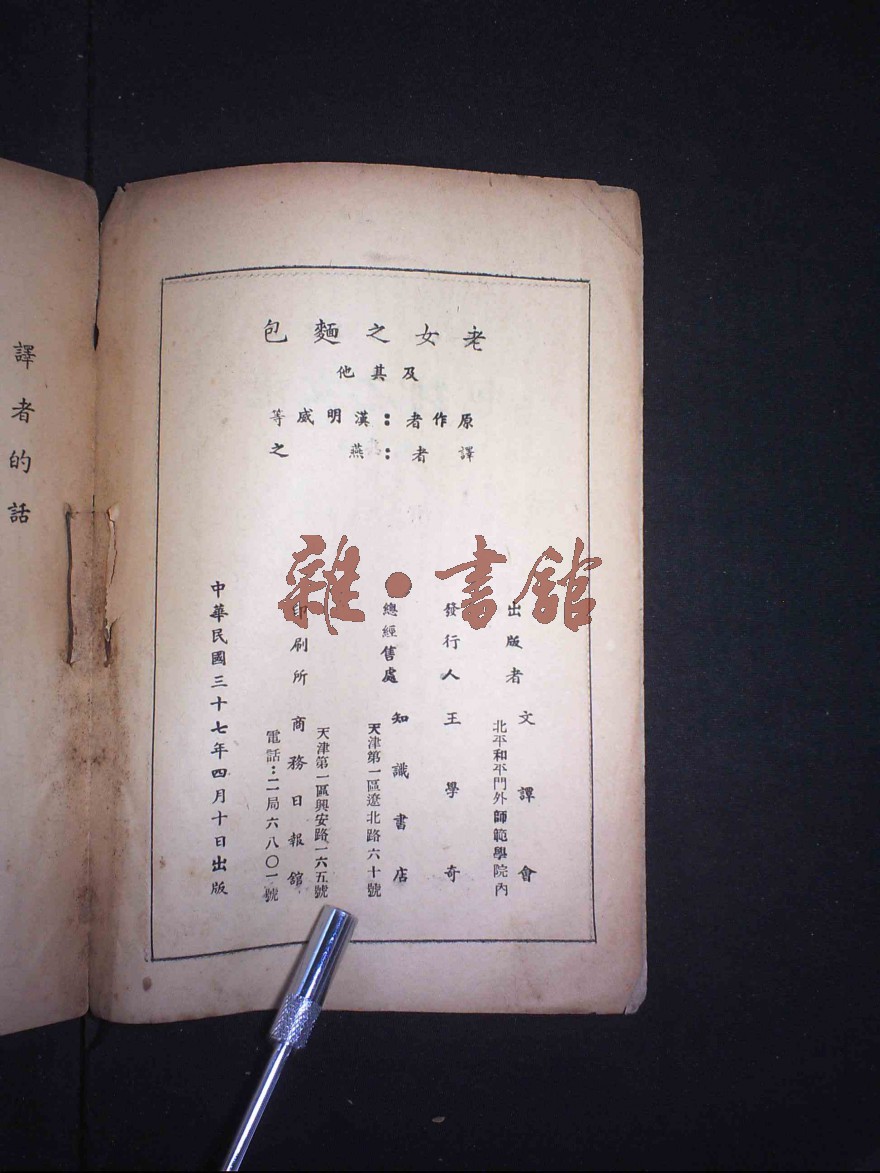 老女之麵包
及其他
原作者：漢明威等
譯者：燕之
出版者 文譯會
北平和平門外師範學院內
發行人 王學奇
總經售處 知識書店
天津第一區遼北路六十號
印刷所 商務日報館
天津第一區興安路一六五號
電話：二局六八〇一號
中華民國三十七年四月十日出版
譯者的話
雜·書館